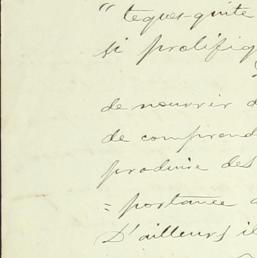 “teques-quite
si prolifiq
de nourrir d
de comprend
produire des
= portance d
D'ailleurs il